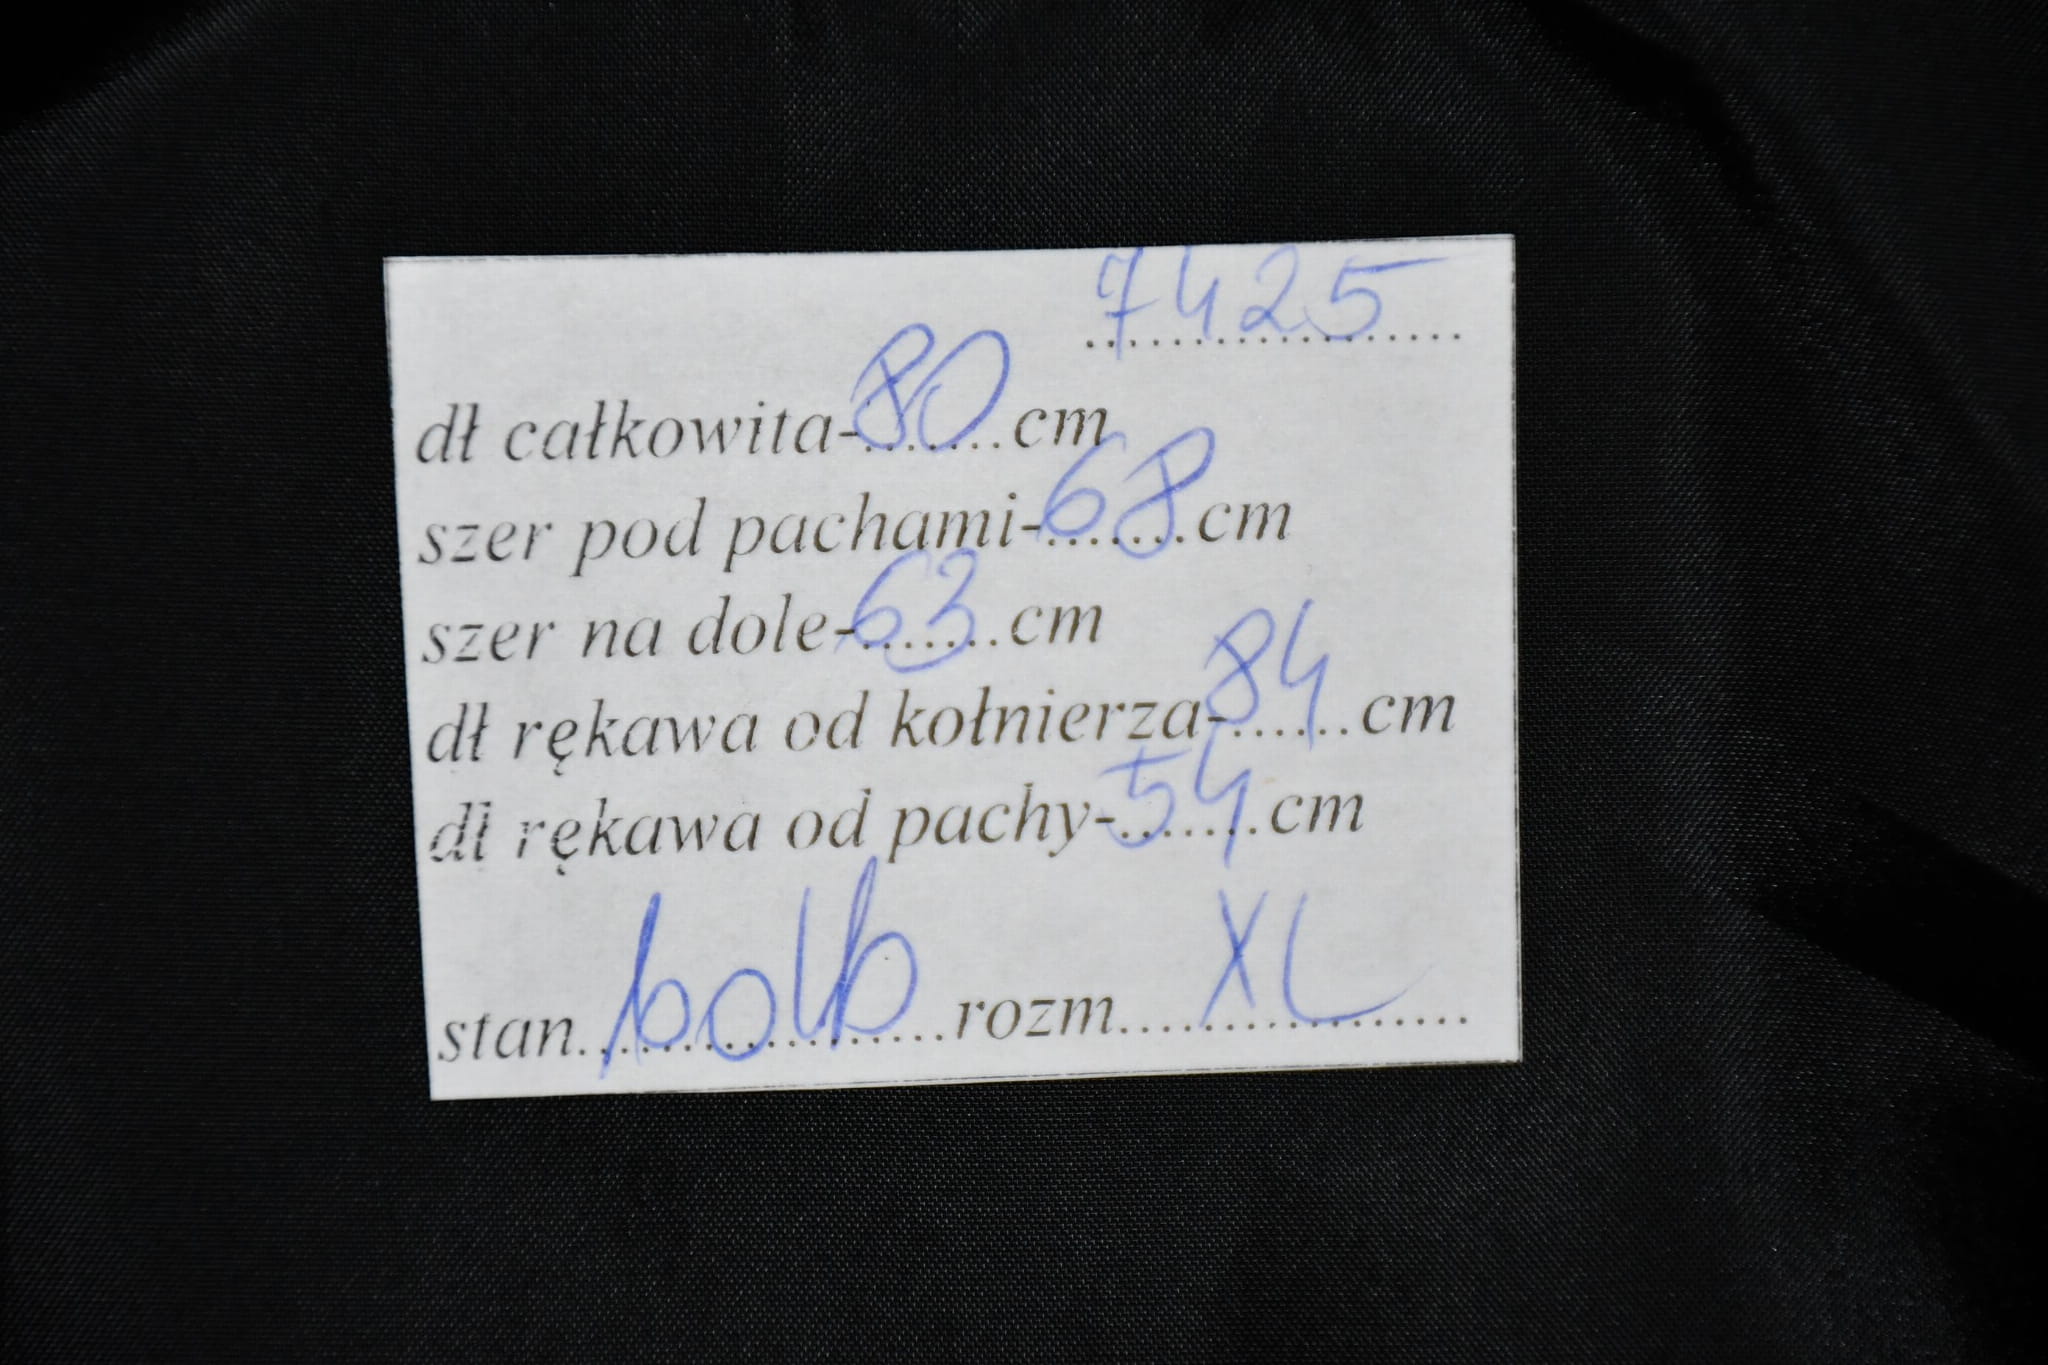 7425
dł całkowita-80 cm
szer pod pachami-68 cm
szer na dole-63 cm
dł rękawa od kołnierza-84 cm
dł rękawa od pachy-54 cm
stan rozm XL